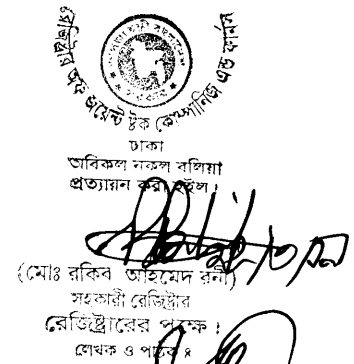 রেজিস্ট্রার অফ জয়েন্ট স্টক কোম্পানিজ এন্ড ফার্মস
ঢাকা
অবিকল নকল বলিয়া
প্রত্যায়ন করা হইল।
(মোঃ রকিব আহমেদ রনী)
সহকারী রেজিষ্ট্রার
রেজিষ্ট্রারের পক্ষে।
লেখক ও পাঠক ঃ